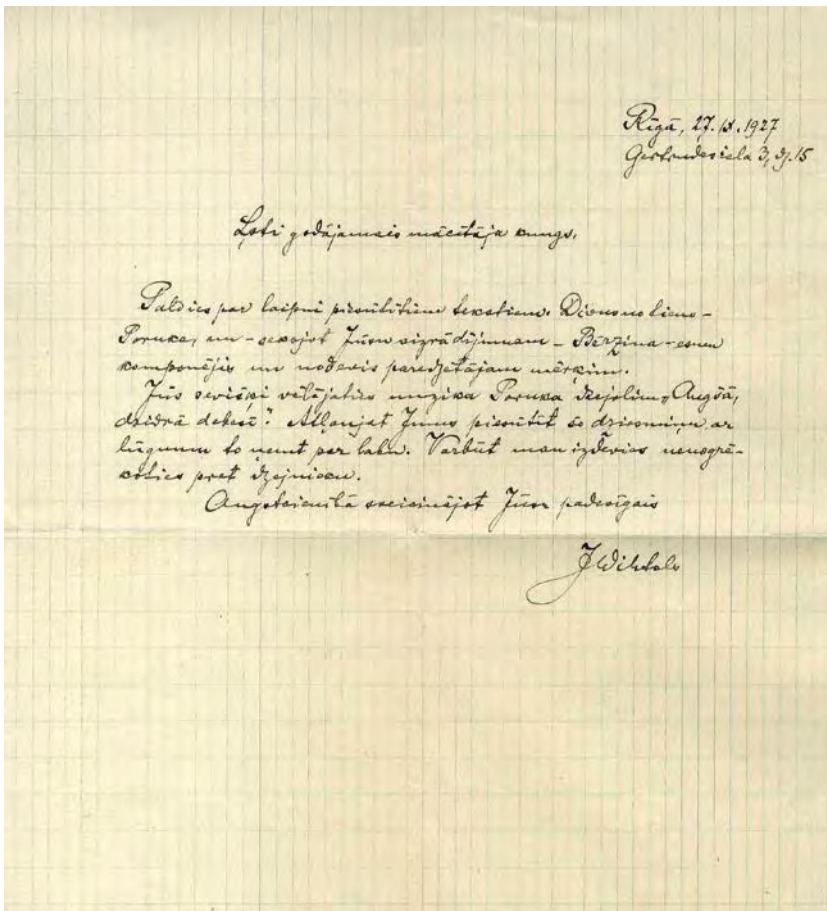 Rīgā, 27. IX. 1927
Gertrudes ielа 3, dz. 15
Ļoti godājamais mācītāja kungs,
Paldies par laipni piesūtītiem tekstiem. Divus no tiem –
Poruka, un – sekojot Jūsu aizrādījumam – Bērziņa – esmu
komponējis un nodevis paredzētajam mērķim.
Jūs sevišķi vēlējaties muziku Poruka dzejolim „Augšā,
dzidrā debesī". Atļaujat Jums piesūtīt šo dziesmiņu ar
lūgumu to ņemt par labu. Varbūt man izdevies nenogrē-
koties pret dzejnieku.
Augstcienībā sveicinājot Jūsu padevīgais
JWihtols